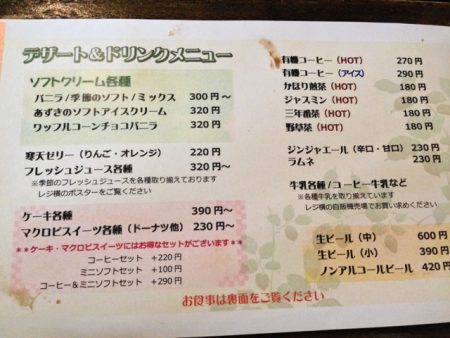 デザート&ドリンクメニュー
ソフトクリーム各種
バニラ/季節のソフト/ミックス 300円~
あずきのソフトアイスクリーム 320円
ワッフルコーンチョコバニラ 320円
寒天ゼリー(りんご・オレンジ) 220円
フレッシュジュース各種 320円~
※季節のフレッシュジュースを各種取り揃えております
レジ横のポスターをご覧ください
ケーキ各種 390円~
マクロビスイーツ各種(ドーナツ他) 230円~
**ケーキ・マクロビスイーツにはお得なセットがございます**
コーヒーセット +220円
ミニソフトセット +100円
コーヒー&ミニソフトセット +290円
有機コーヒー(HOT) 270円
有機コーヒー(アイス) 290円
かほり煎茶(HOT) 180円
ジャスミン(HOT) 180円
三年番茶(HOT) 180円
野草茶(HOT) 180円
ジンジャエール(辛口・甘口) 230円
ラムネ 230円
牛乳各種/コーヒー牛乳など
※各種牛乳を取り揃えています
レジ横の自販機売場でお買い求めください
生ビール(中) 600円
生ビール(小) 390円
ノンアルコールビール 420円
お食事は裏面をご覧ください